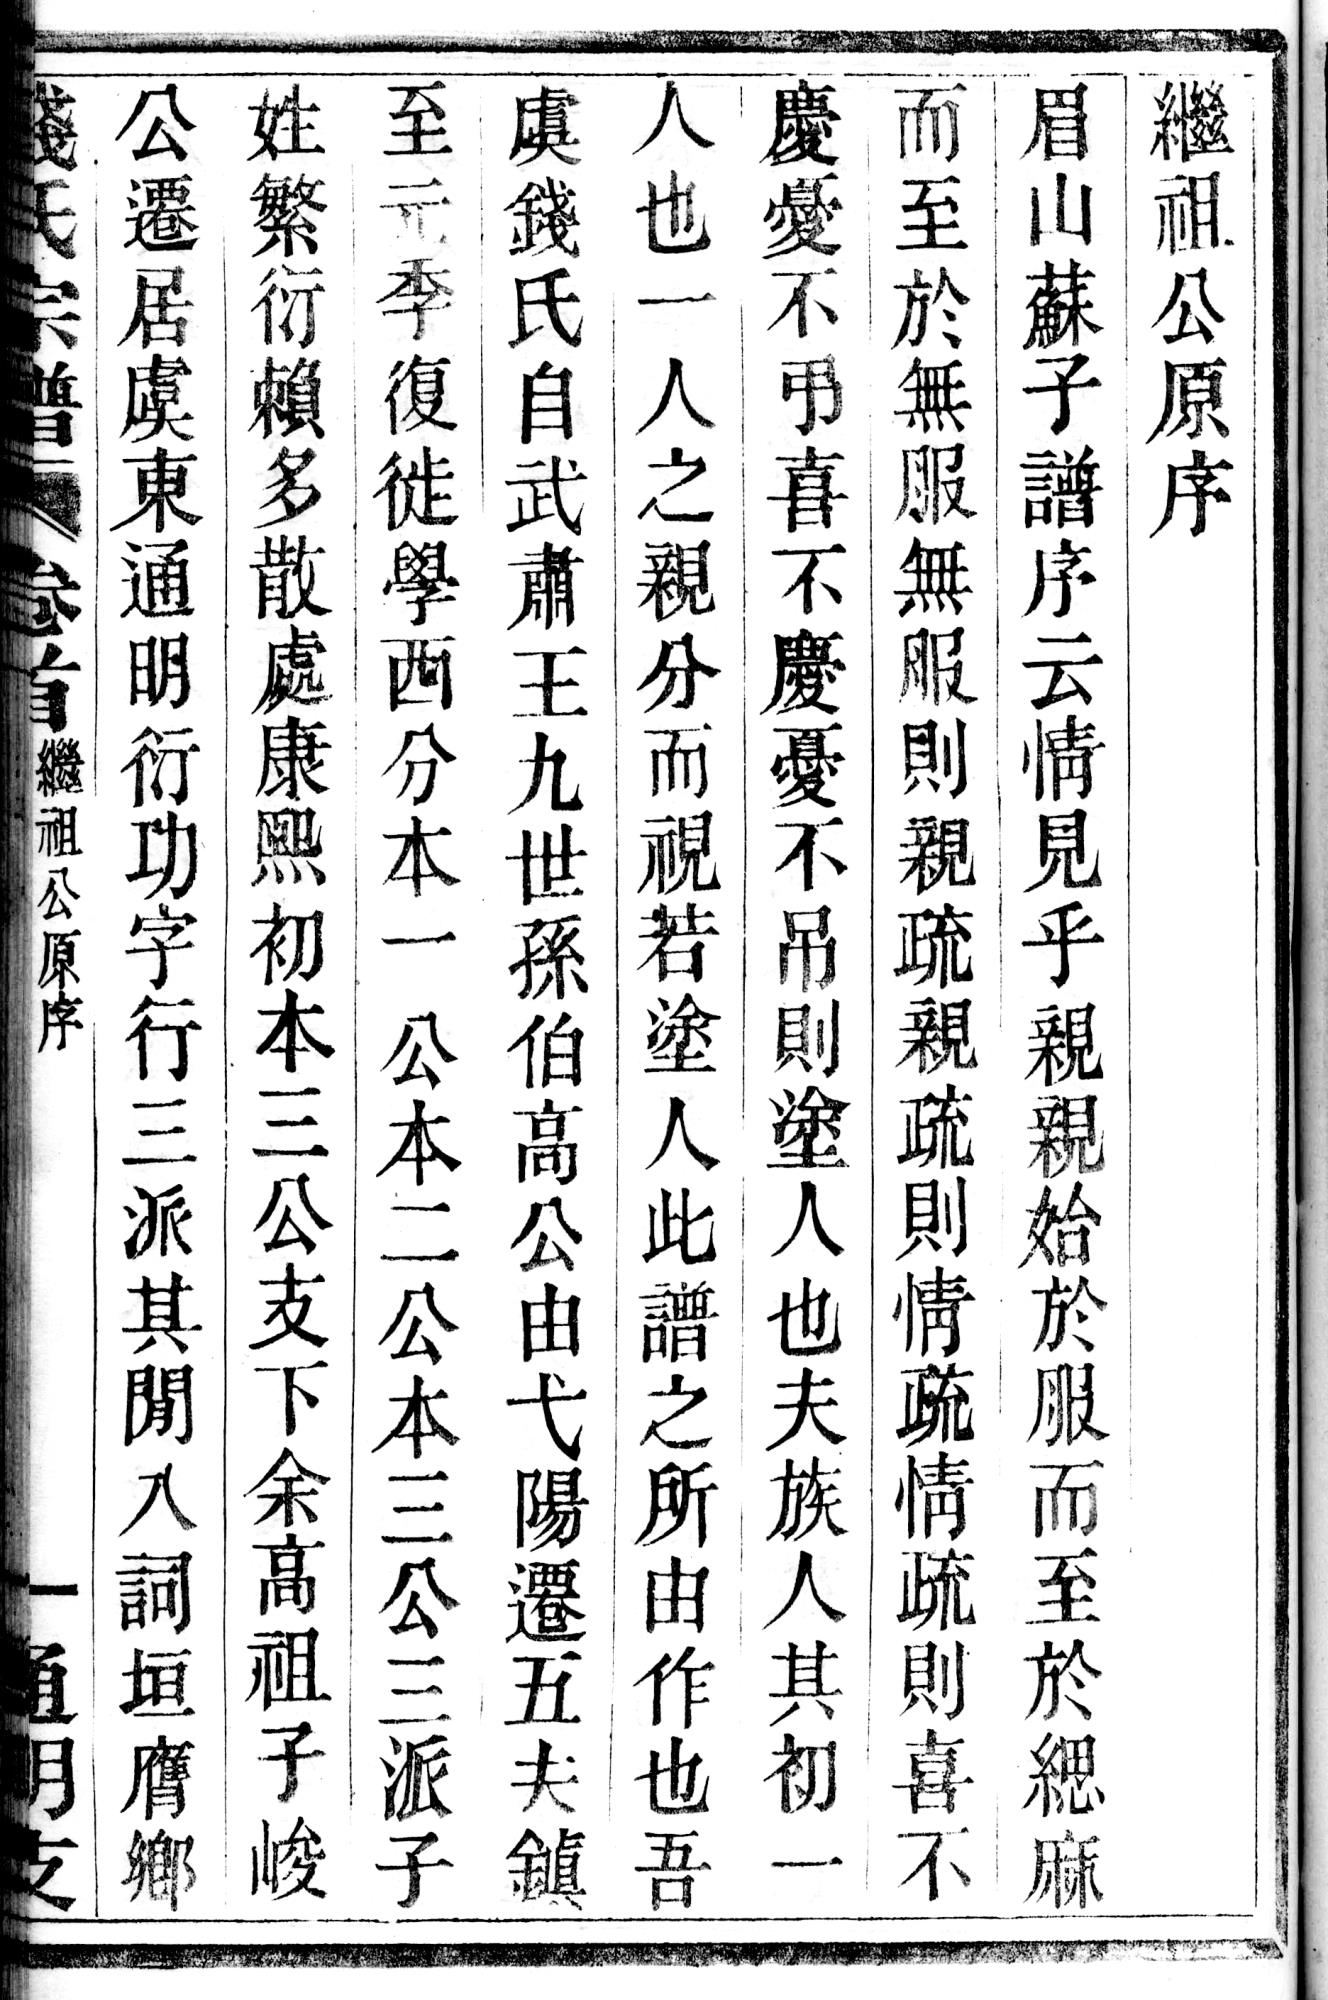 繼祖公原序
眉山蘇子譜序云情見乎親親始於服而至於緦麻
而至於無服無服則親疏親疏則情疏情疏則喜不
慶憂不弔喜不慶憂不吊則塗人也夫族人其初一
人也一人之親分而視若塗人此譜之所由作也吾
虞錢氏自武肅王九世孫伯高公由弋陽遷五夫鎮
至元季復徙學西分本一 公本二公本三公三派子
姓繁衍賴多散處康熙初本三公支下余高祖子峻
公遷居虞東通明衍功字行三派其閒入詞垣膺鄉
錢氏宗譜 卷首 繼祖公原序 一 通明支